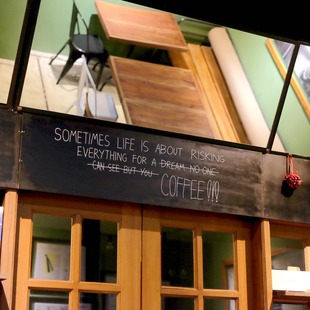 SOMETIMES LIFE IS ABOUT RISKING
EVERYTHING FOR A DREAM NO ONE
CAN SEE BUT YOU
COFFEE!!!